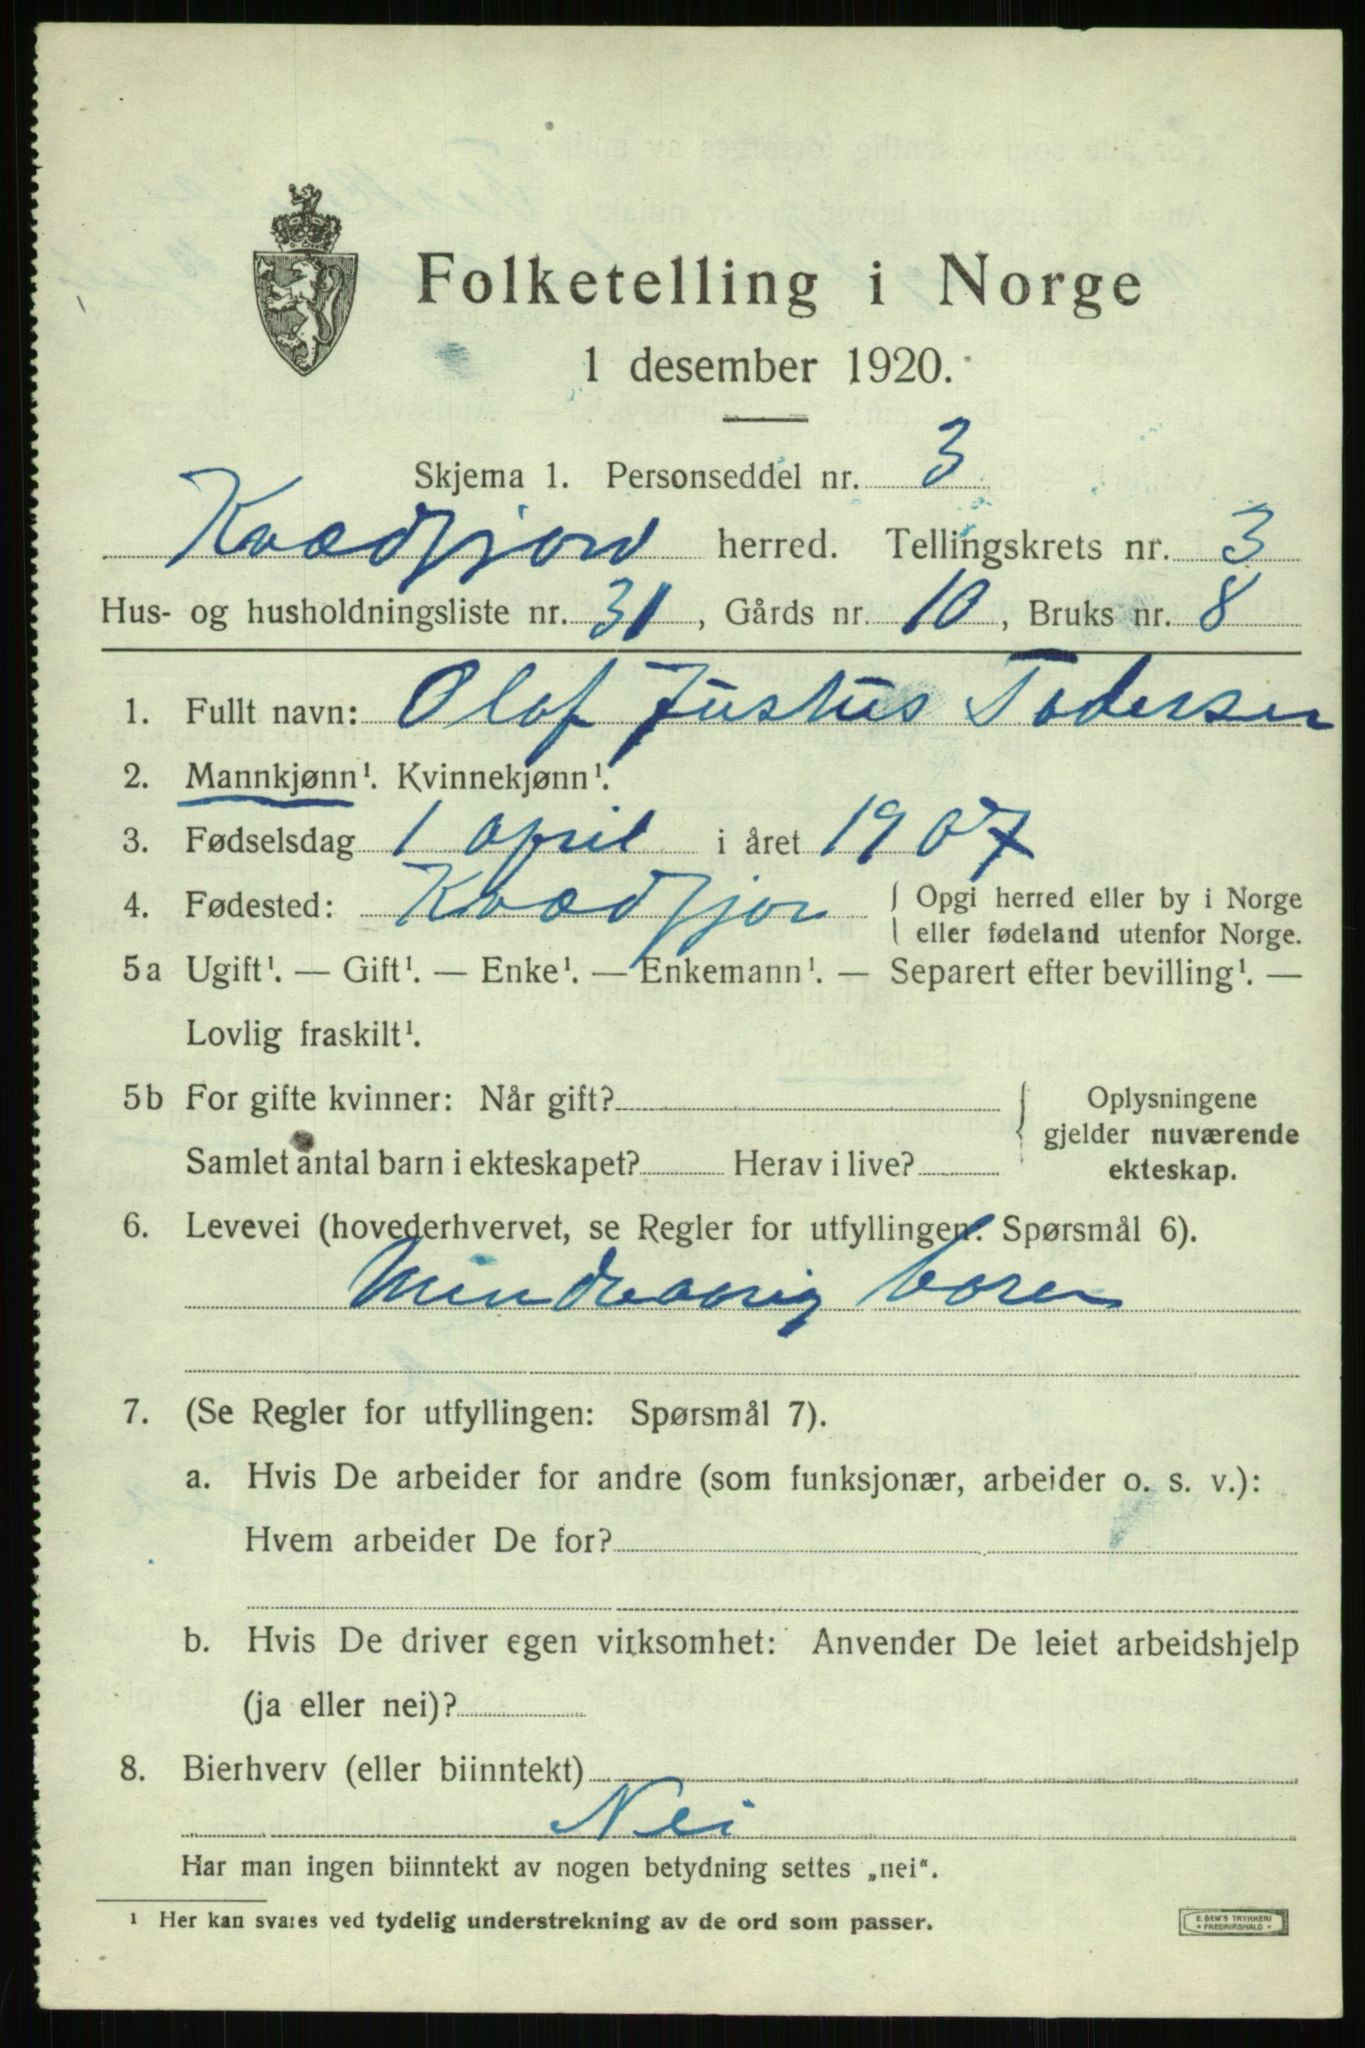 Folketelling i Norge
1 desember 1920.
Skjema 1. Personseddel nr. 3
Kvædfjord herred. Tellingskrets nr. 3
Hus- og husholdningsliste nr. 31, Gårds nr. 10, Bruks nr. 8
1. Fullt navn: Olaf Justus Todersen
2. Mannkjønn¹. Kvinnekjønn¹.
3. Fødselsdag 1 april i året 1907
4. Fødested: Kvædfjor { Opgi herred eller by i Norge
eller fødeland utenfor Norge.
5a Ugift¹. — Gift¹. — Enke¹. — Enkemann¹. — Separert efter bevilling¹. —
Lovlig fraskilt¹.
5b For gifte kvinner: Når gift? { Oplysningene
gjelder nuværende
Samlet antal barn i ekteskapet? Herav i live? ekteskap.
6. Levevei (hovederhvervet, se Regler for utfyllingen: Spørsmål 6).
Mindreaarig
7. (Se Regler for utfyllingen: Spørsmål 7).
a. Hvis De arbeider for andre (som funksjonær, arbeider o. s. v.):
Hvem arbeider De for?
b. Hvis De driver egen virksomhet: Anvender De leiet arbeidshjelp
(ja eller nei)?
8. Bierhverv (eller biinntekt)
Nei
Har man ingen biinntekt av nogen betydning settes „nei“.
¹ Her kan svares ved tydelig understrekning av de ord som passer.
E. SEM'S TRYKKERI
• FREDRIKSHALD •